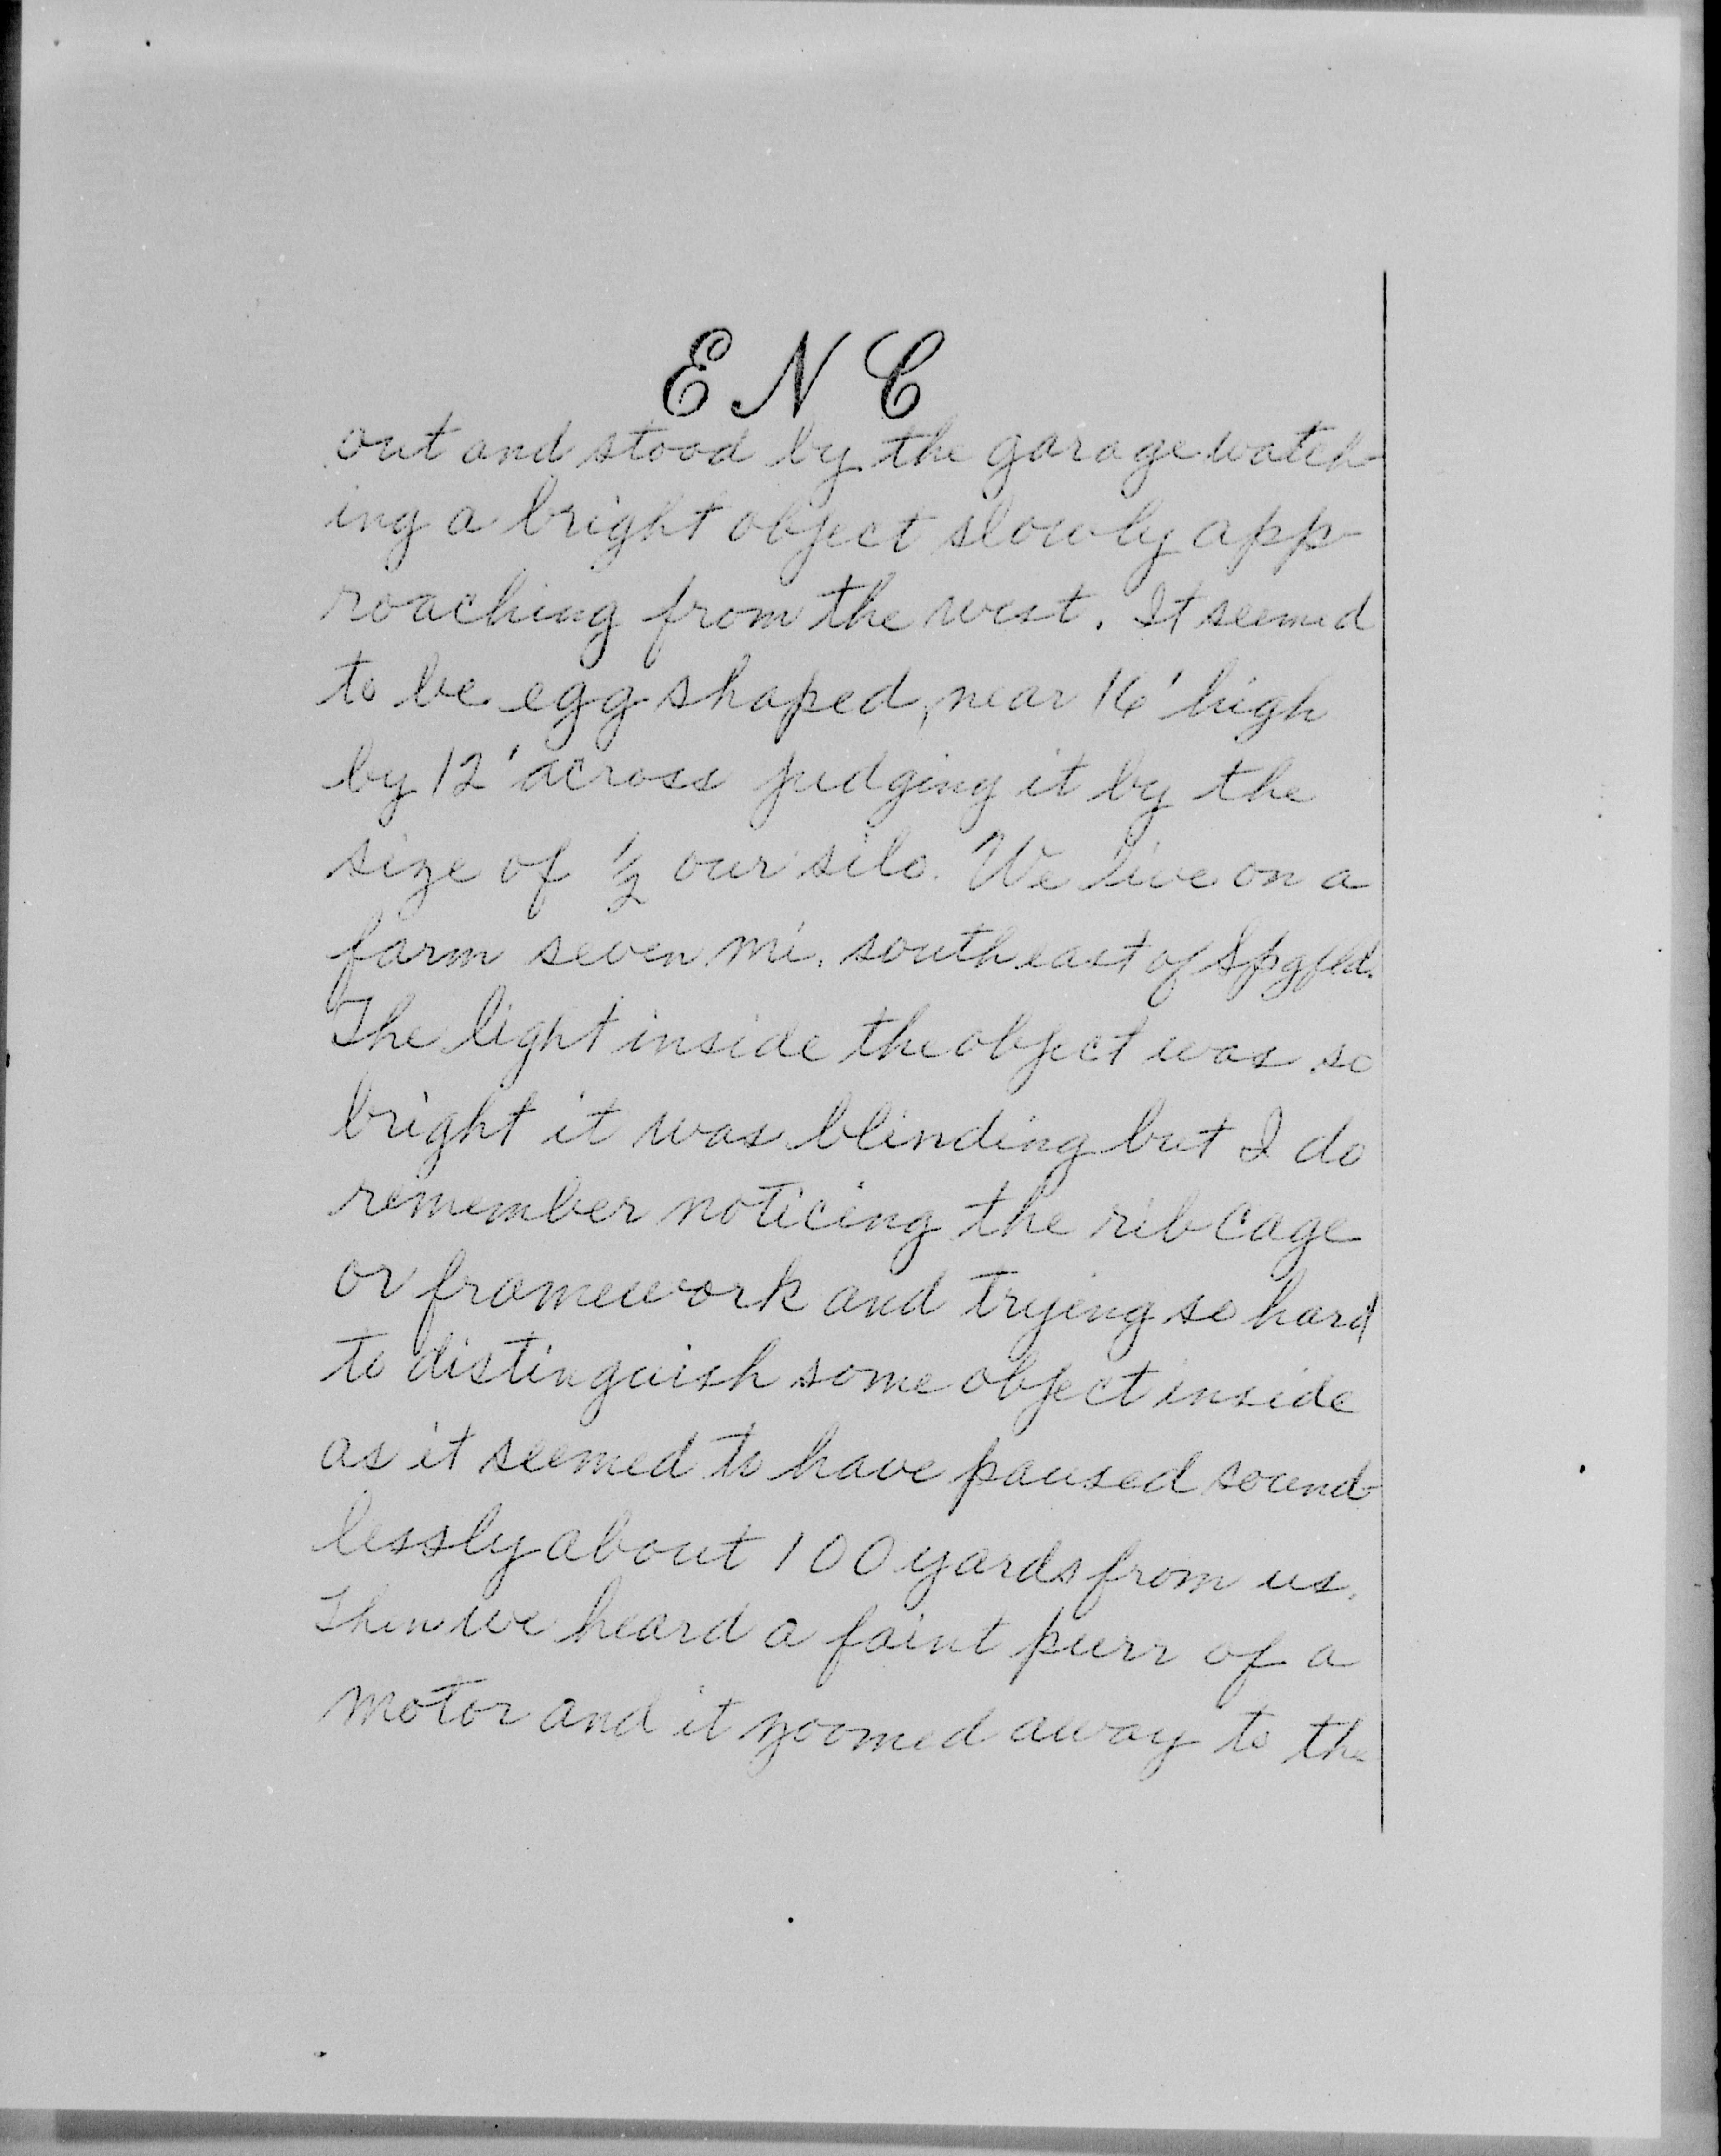 E N C
out and stood by the garage watch-
ing a bright object slowly app-
roaching from the west. It seemed
to be egg shaped, near 16' high
by 12' across judging it by the
size of ½ our silo. We live on a
farm seven mi. southeast of Spgfld.
The light inside the object was so
bright it was blinding but I do
remember noticing the rib cage
or framework and trying so hard
to distinguish some object inside
as it seemed to have paused sound-
lessly about 100 yards from us.
Then we heard a faint purr of a
motor and it zoomed away to the